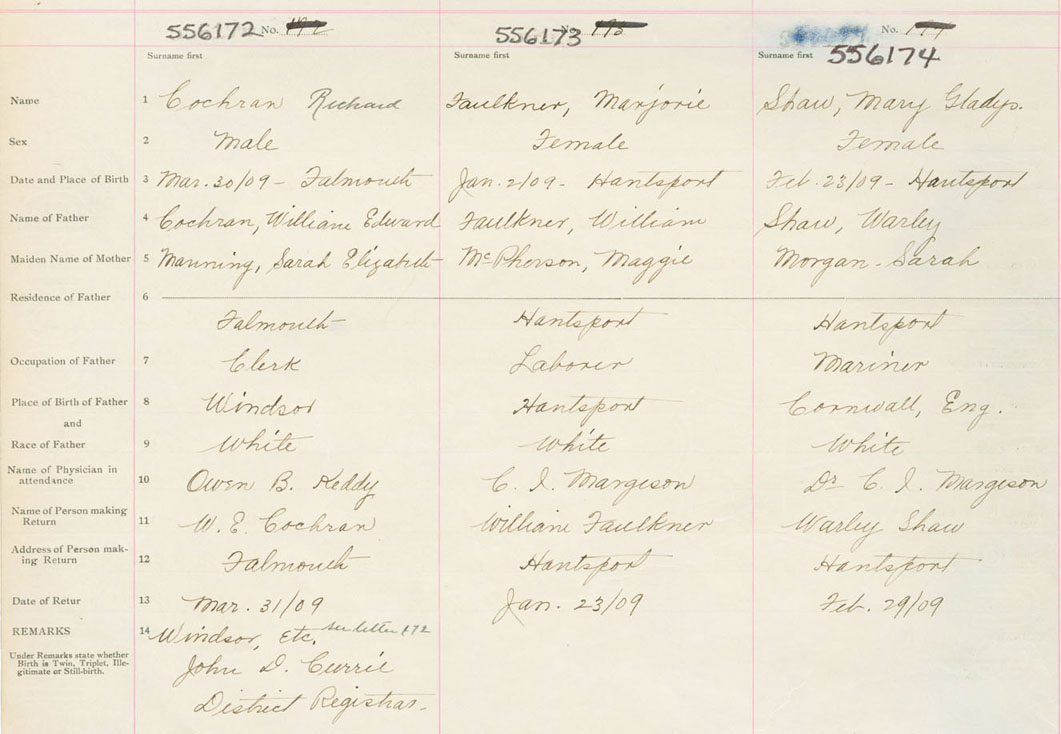 556172 No. 556173 No. No. 556174
Surname first Surname first Surname first
Name 1 Cochran Richard Faulkner, Marjorie Shaw, Mary Gladys.
Sex 2 Male Female Female
Date and Place of Birth 3 Mar. 30/09 - Falmouth Jan. 2/09 - Hantsport Feb. 23/09 - Hantsport
Name of Father 4 Cochran, William Edward Faulkner, William Shaw, Warley
Maiden Name of Mother 5 Manning, Sarah Elizabeth McPherson, Maggie Morgan - Sarah
Residence of Father 6
Falmouth Hantsport Hantsport
Occupation of Father 7 Clerk Laborer Mariner
Place of Birth of Father 8 Windsor Hantsport Cornwall, Eng.
and
Race of Father 9 White White White
Name of Physician in
attendance 10 Owen B. Keddy C. I. Margeson Dr C. I. Margeson
Name of Person making
Return 11 W. E. Cochran William Faulkner Warley Shaw
Address of Person mak-
ing Return 12 Falmouth Hantsport Hantsport
Date of Retur 13 Mar. 31/09 Jan. 23/09 Feb. 29/09
REMARKS 14 Windsor, Etc. see letter 172
Under Remarks state whether
Birth is Twin, Triplet, Ille-
gitimate or Still-birth.
John D. Currie
District Registrar -